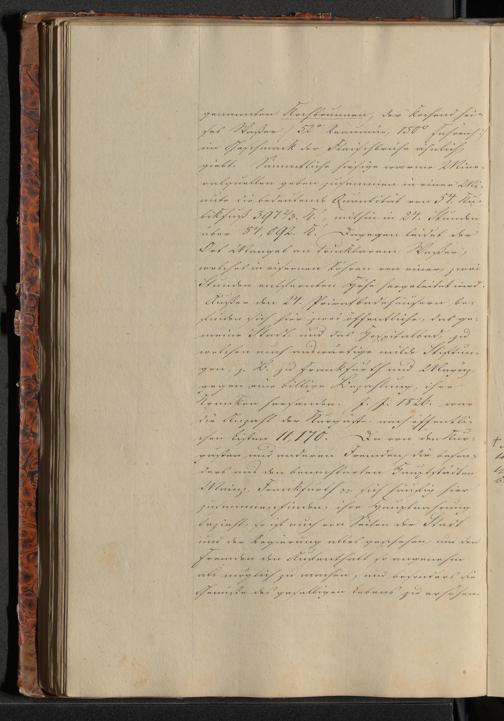 genannten Kochbrunnen, der Kochend hei-
ßes Waßer / 52° Reaumür, 150° Fahrenh: /
im Geschmack der Fleischbrühe ähnlich
giebt. Sämmtliche hiesige warme Mine-
ralquellen geben zusammen in einer Mi-
nute die bedeutende Quantität von 54. Ku-
bikfuß 397⅔ K., mithin in 24. Stunden
über 84,092. K. Dagegen leidet der
Ort Mangel an trinkbarem Waßer,
welches in eisernen Röhren von einer, zwei
Stunden entfernten Höhe hergeleitet wird.
Außer den 24. Privatbadehäusern be-
finden sich hier zwei öffentliche, das ge-
meine Stadt- und das Hospitalbad, zu
welchen auch auswärtige milde Stiftun-
gen, z. B. zu Frankfurth und Mainz,
gegen eine billige Bezahlung, ihre
Kranken hersenden. J. J. 1826. war
die Anzahl der Kurgäste nach öffentli-
chen Listen 11,170. Da von den Kur-
gästen und anderen Fremden, die beson-
ders aus den benachbarten Hauptstädten
Mainz, Frankfurth sich häufig hier
zusammenfinden, ihre Hauptnahrung
bezieht, so ist auch von Seiten der Stadt
und der Regierung alles geschehen, um den
Fremden den Aufenthalt so angenehm
als möglich zu machen, und besonders die
Genüße des geselligen Lebens zu erhöhen.